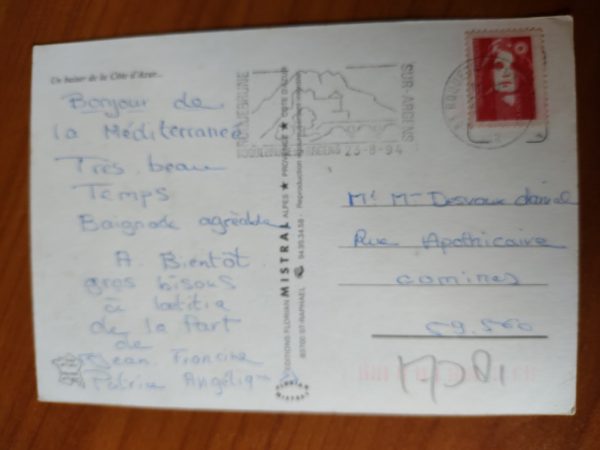 Un baiser de la Côte d'Azur...
Bonjour de
la Méditerranée
Très beau
Temps
Baignade agréable
A Bientôt
gros bisous
à laetitia
de la part
de
Jean Francine
Angélique
ROQUEBRUNE
SUR-ARGENS
23-8-94
EDITIONS FLORIAN MISTRAL ALPES ★ PROVENCE ★ CÔTE D'AZUR
83700 ST-RAPHAËL 94.95.34.58 - Reproduction
FLORIAN MISTRAL
Mr Mme Desvaux daniel
Rue Apothicaire
comines
59.560